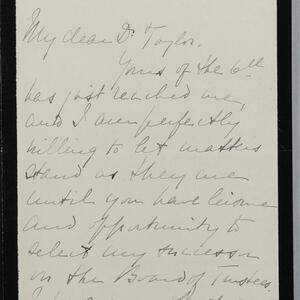 My dear Dr Taylor.
Yours of the 6th
has just reached me,
and I am perfectly
willing to let matters
stand as they are
until you have leisure
and opportunity to
select my successor
on the Board of Trustees.